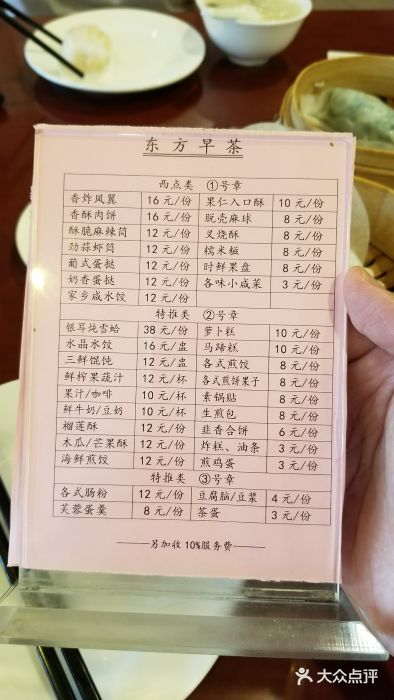 东方早茶
西点类 ①号章
香炸凤翼 16元/份 果仁入口酥 10元/份
香酥肉饼 16元/份 脱壳麻球 8元/份
酥脆麻辣筒 12元/份 叉烧酥 8元/份
劲蒜虾筒 12元/份 糯米糍 8元/份
葡式蛋挞 12元/份 时鲜果盘 8元/份
奶香蛋挞 12元/份 各味小咸菜 3元/份
家乡咸水饺 12元/份
特推类 ②号章
银耳炖雪蛤 38元/份 萝卜糕 10元/份
水晶水饺 16元/盅 马蹄糕 10元/份
三鲜馄饨 12元/盅 各式煎饺 8元/份
鲜榨果蔬汁 12元/杯 各式煎饼果子 8元/份
果汁/咖啡 10元/杯 素锅贴 8元/份
鲜牛奶/豆奶 10元/杯 生煎包 8元/份
榴莲酥 12元/份 韭香合饼 6元/份
木瓜/芒果酥 12元/份 炸糕、油条 3元/份
海鲜煎饺 12元/份 煎鸡蛋 3元/份
特推类 ③号章
各式肠粉 12元/份 豆腐脑/豆浆 4元/份
芙蓉蛋羹 8元/份 茶蛋 3元/份
——另加收10%服务费——
大众点评